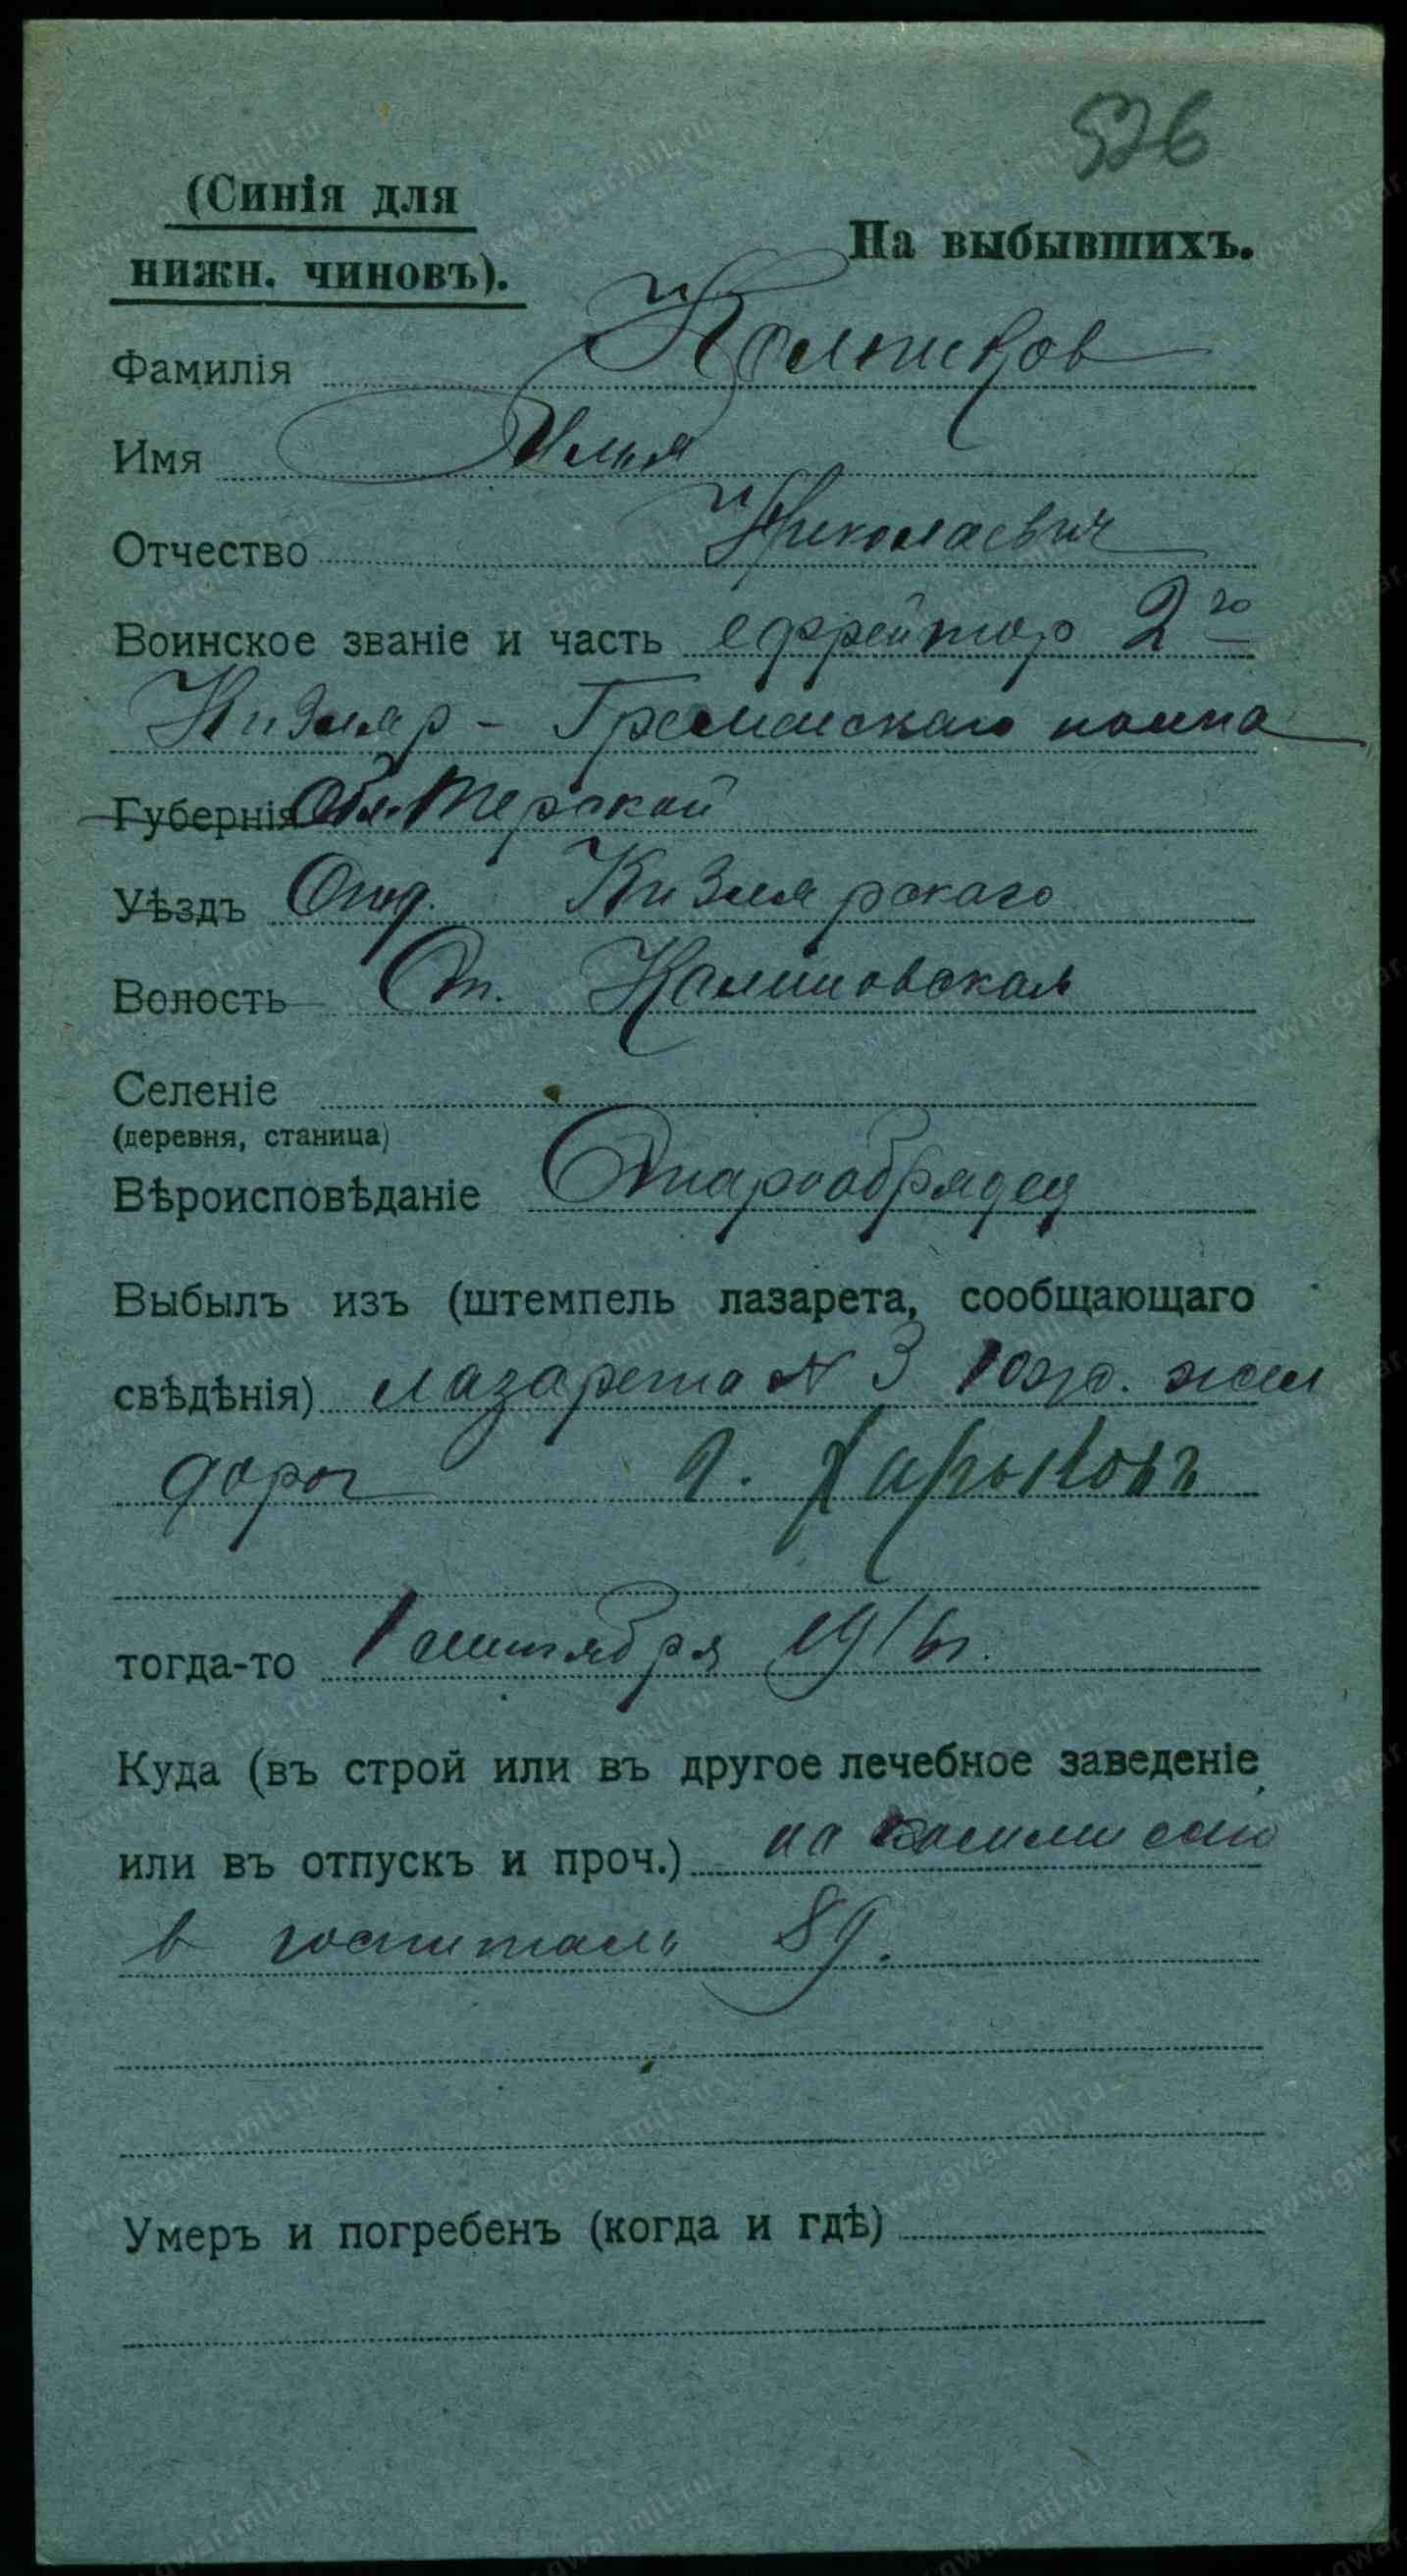 526
(Синія для
нижн. чиновъ).
На выбывшихъ.
Фамилія Колтиков
Имя Илья
Отчество Николаевич
Воинское званіе и часть ефрейтор 2го
Кизляр-Гребенскаго полка
Губернія Обл. Терской
Уѣздъ Отд. Кизлярскаго
Волость Ст. Калиновская
Селеніе
(деревня, станица)
Вѣроисповѣданіе Старообрядец
Выбылъ изъ (штемпель лазарета, сообщающаго
свѣдѣнія) лазарета № 3 Южн. жел
дорог г. Харьковъ
тогда-то 1 сентября 1916 г.
Куда (въ строй или въ другое лечебное заведеніе
или въ отпускъ и проч.) на комиссию
в госпиталь 89.
Умеръ и погребенъ (когда и гдѣ)